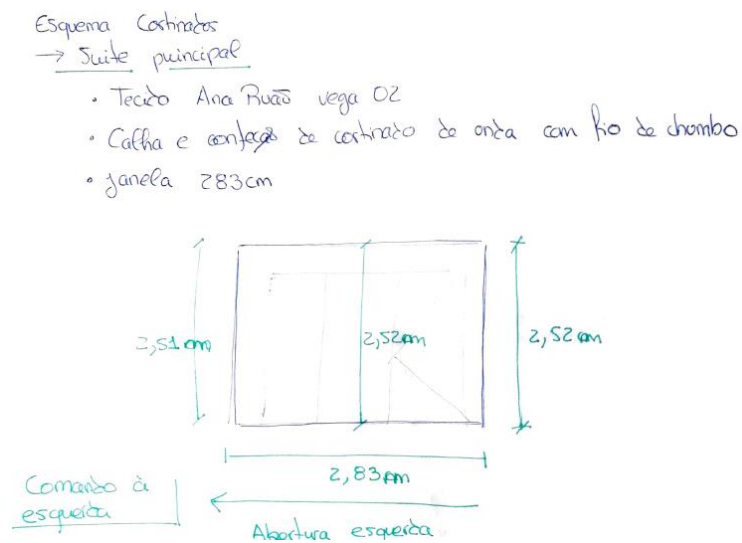 Esquema Cortinados
→ Suite principal
• Tecido Ana Ruão vega 02
• Calha e confeção de cortinado de onda com fio de chumbo
• Janela 283cm
2,51 cm
2,52cm
2,52 cm
2,83cm
Comando à
esquerda
Abertura esquerda